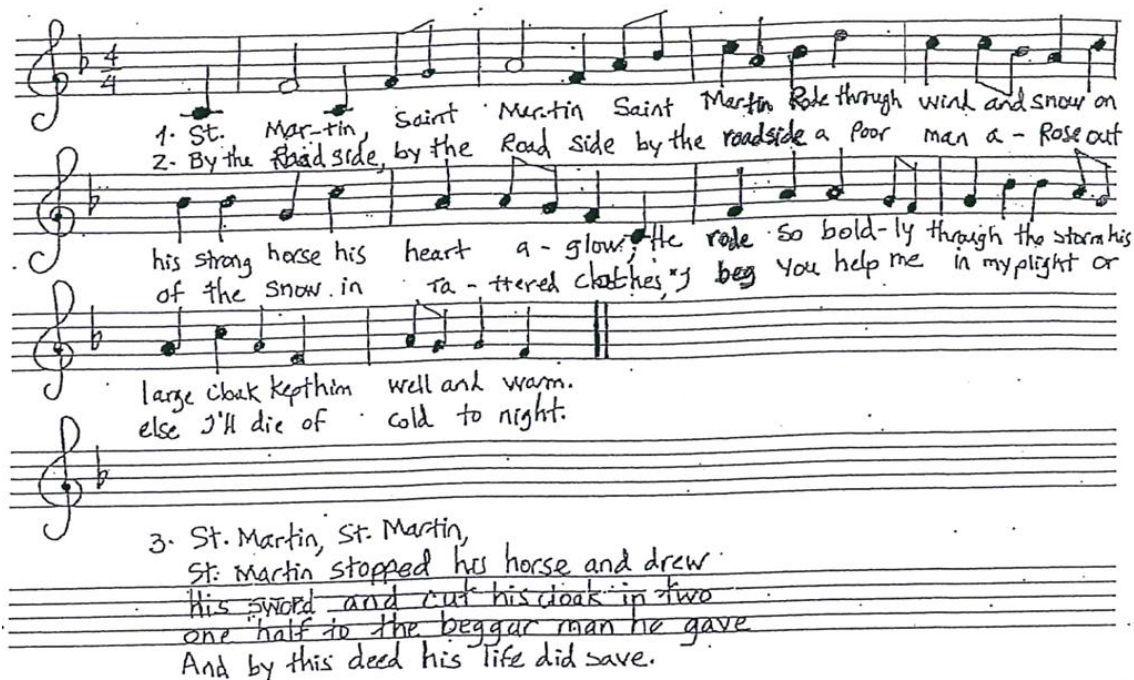 4
4
1. St. Mar-tin, Saint Mar-tin Saint Martin Rode through wind and snow on
2. By the Road side, by the Road side by the roadside a Poor man a - Rose out
his strong horse his heart a - glow, He rode so bold-ly through the storm his
of the snow in Ta - ttered clothes, "I beg You help me in my plight or
large cloak kept him well and warm.
else I'll die of cold to night.
3. St. Martin, St. Martin,
St. Martin stopped his horse and drew
His sword and cut his cloak in two
one half to the beggar man he gave
And by this deed his life did save.